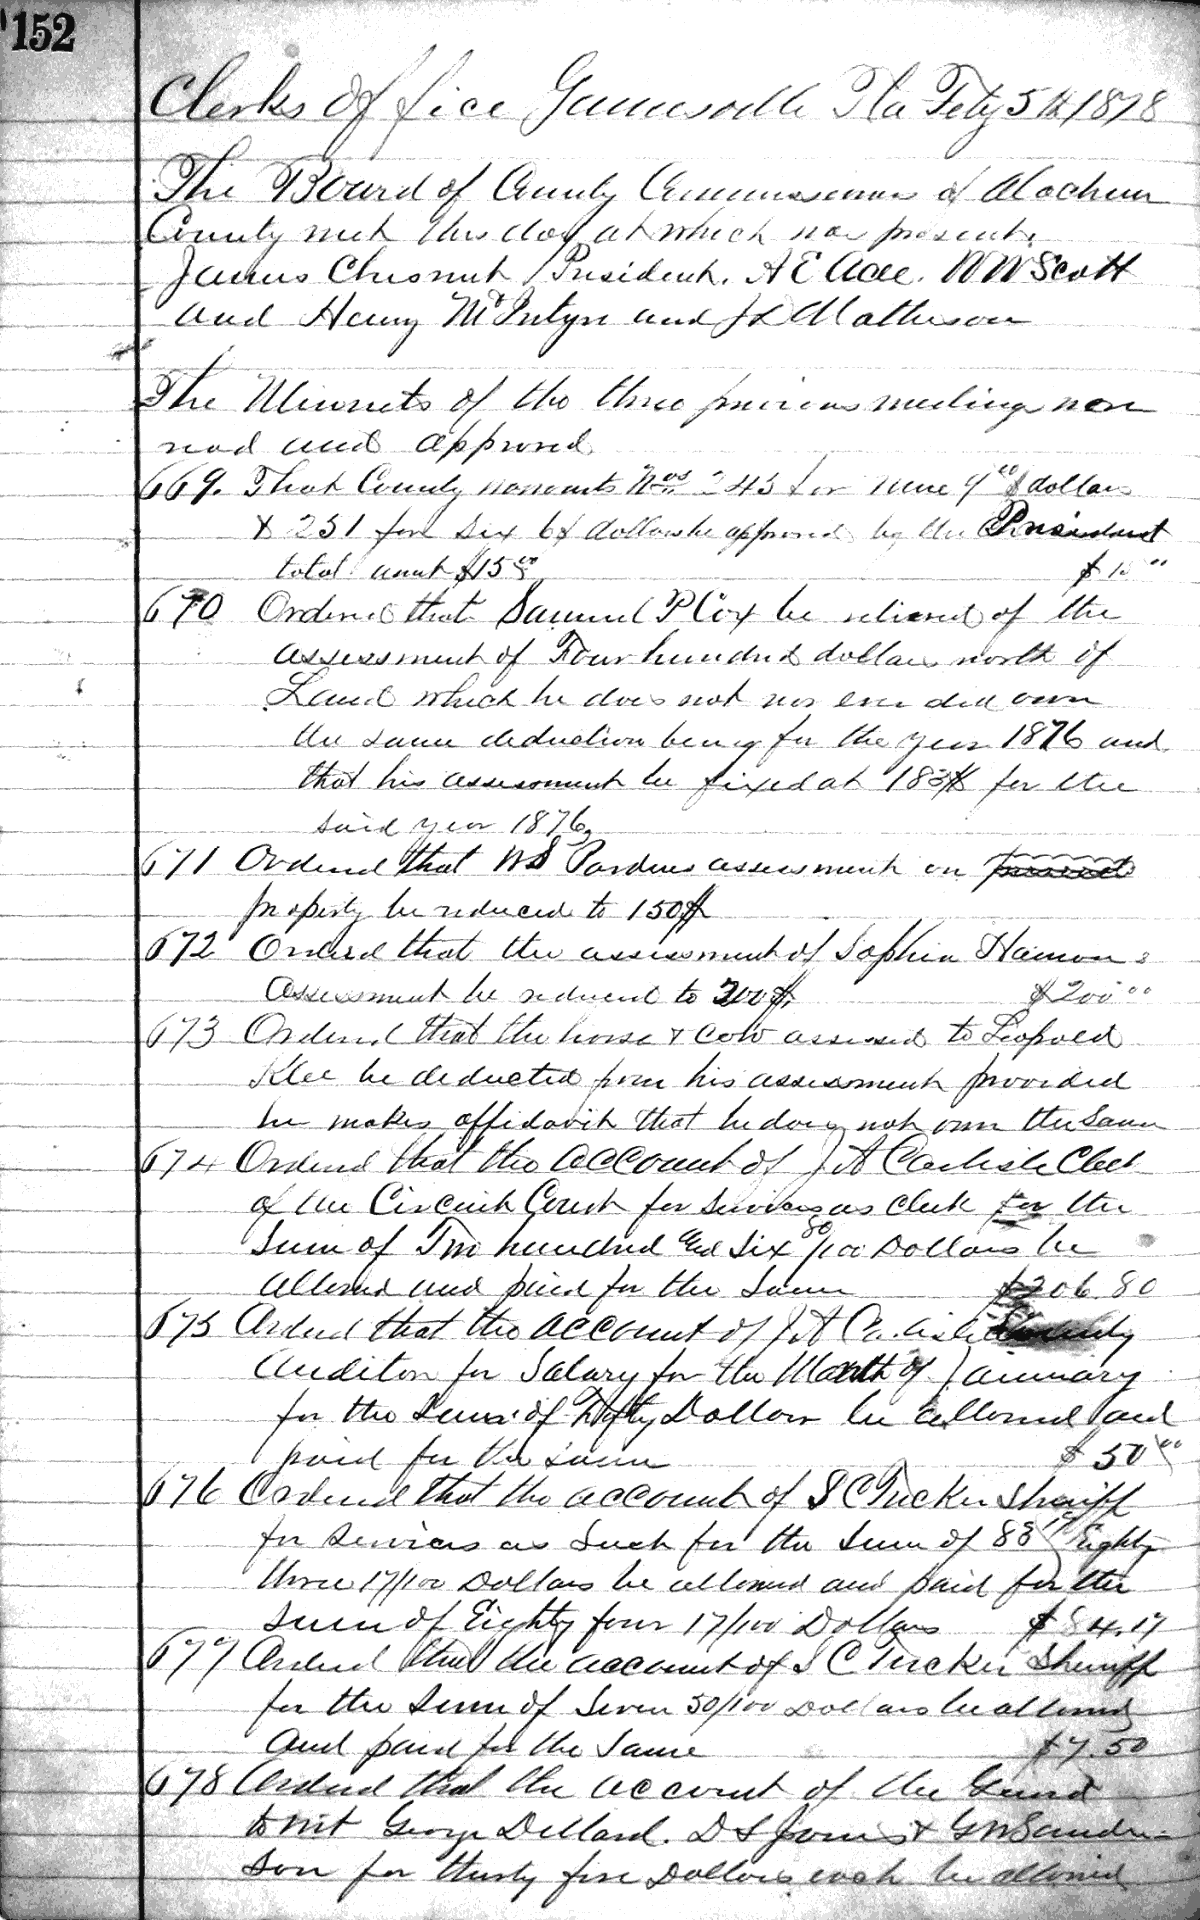 152
Clerks Office Gainesville Fla Feby 5th 1878
The Board of County Commissioners of Alachua
County met this day at which was present,
James Chesnut President. A E Acee. W W Scott
and Henry McIntyre and J D Matheson
The Minuets of the three previous meetings were
read and approved
669. That County warrants Nos 245 for nine 9 00 $ dollars
& 251 for six 6$ dollars be approved by the President
total amt $15 00 $15 00
670 Ordered that Samuel P Cox be relieved of the
assessment of Four hundred dollars worth of
Land which he does not nor ever did own
the same deduction being for the year 1876 and
that his assessment be fixed at 183$ for the
said year 1876
671 Ordered that W S assessment on
property be reduced to 150$
672 Ordered that the assessment of Sophia
Assessment be reduced to 200$. $200 00
673 Ordered that the horse & cow assessed to Leopold
Klee be deducted from his assessment provided
he makes affidavit that he does not own the same
674 Ordered that the account of J A Carlisle Clerk
of the Circuit Court for services as clerk for the
Sum of Two hundred and Six 80/100 Dollars be
allowed and paid for the Same $206.80
675 Ordered that the account of J A Carlisle County
Auditor for Salary for the Month of January
for the Sum of Fifty Dollars be allowed and
paid for the same $50 00
676 Ordered that the account of S C Tucker Sheriff
for services as Such for the Sum of 83 17 Eighty
three 17/100 Dollars be allowed and paid for the
sum of Eighty four 17/100 Dollars $84.17
677 Ordered that the account of S C Tucker Sheriff
for the Sum of Seven 50/100 Dollars be allowed
and paid for the Same $7.50
678 Ordered that the account of the Guard
to wit George Dellard. D S Jones & G W Sander-
son for thirty five Dollars each be allowed